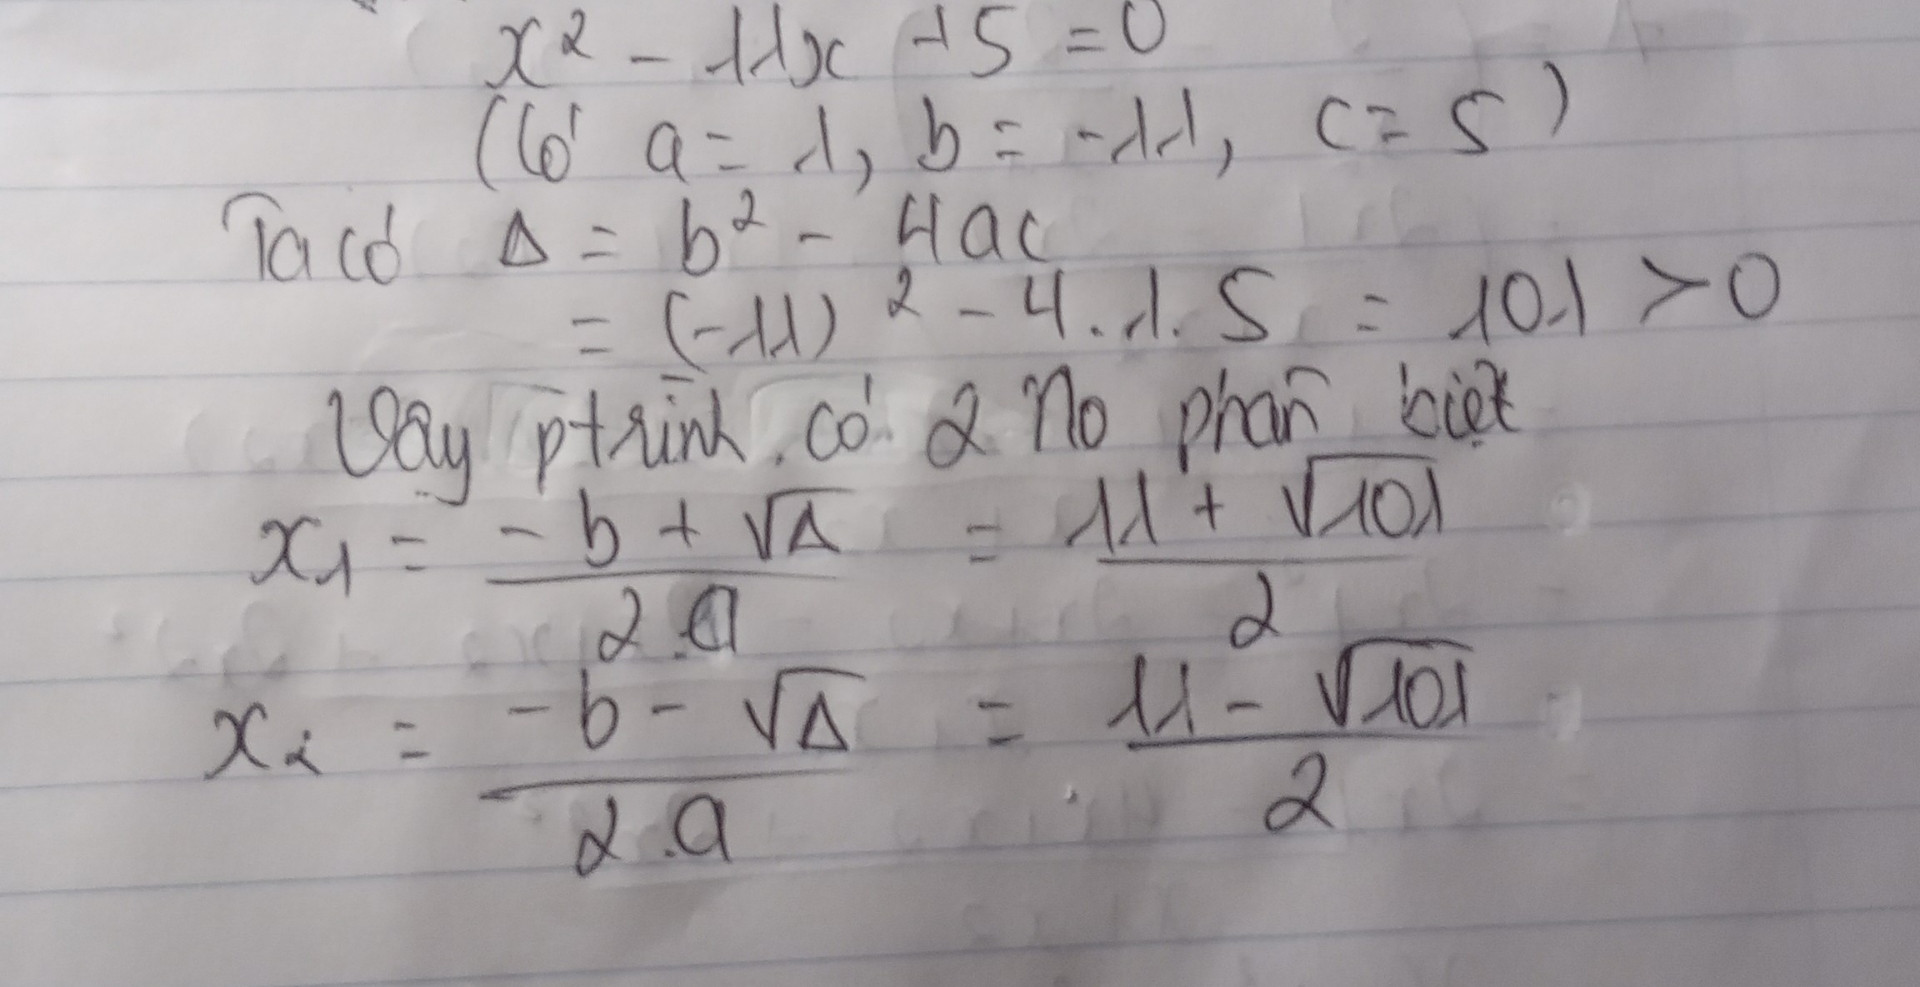 x² - 11x + 5 = 0
(Có a = 1, b = -11, c = 5)
Ta có Δ = b² - 4ac
= (-11)² - 4.1.5 = 101 > 0
Vậy ptrình có 2 No phân biệt
x₁ = (-b + √Δ)/(2.a) = (11 + √101)/2
x₂ = (-b - √Δ)/(2.a) = (11 - √101)/2